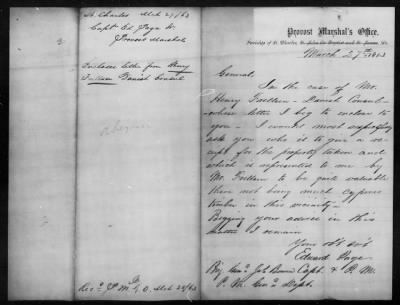 St. Charles Mch 27/63
Capt Ed Page &
Provost Marshal
Encloses letter from Henry
Danish Consul
Recd P. M. G. O. Mch 28/63
Provost Marshal's Office,
Parishes of St. Charles, St. John the Baptist and St. James, La.
March 27th 1863
General:
In the case of Mr.
Henry Frellsen - Danish Consul -
whose letter I beg to enclose to
you - I would most respectfully
ask you who is to give a re-
ceipt for the property taken and
which is represented to me by
Mr. Frellsen to be quite valuable
there not being much cypress
timber in this vicinity -
Begging your advice in this
matter I remain
Your obt svt
Edward Page
Capt & P. M.
Brig Genl Jas Bowen
P. M. Genl Dept.